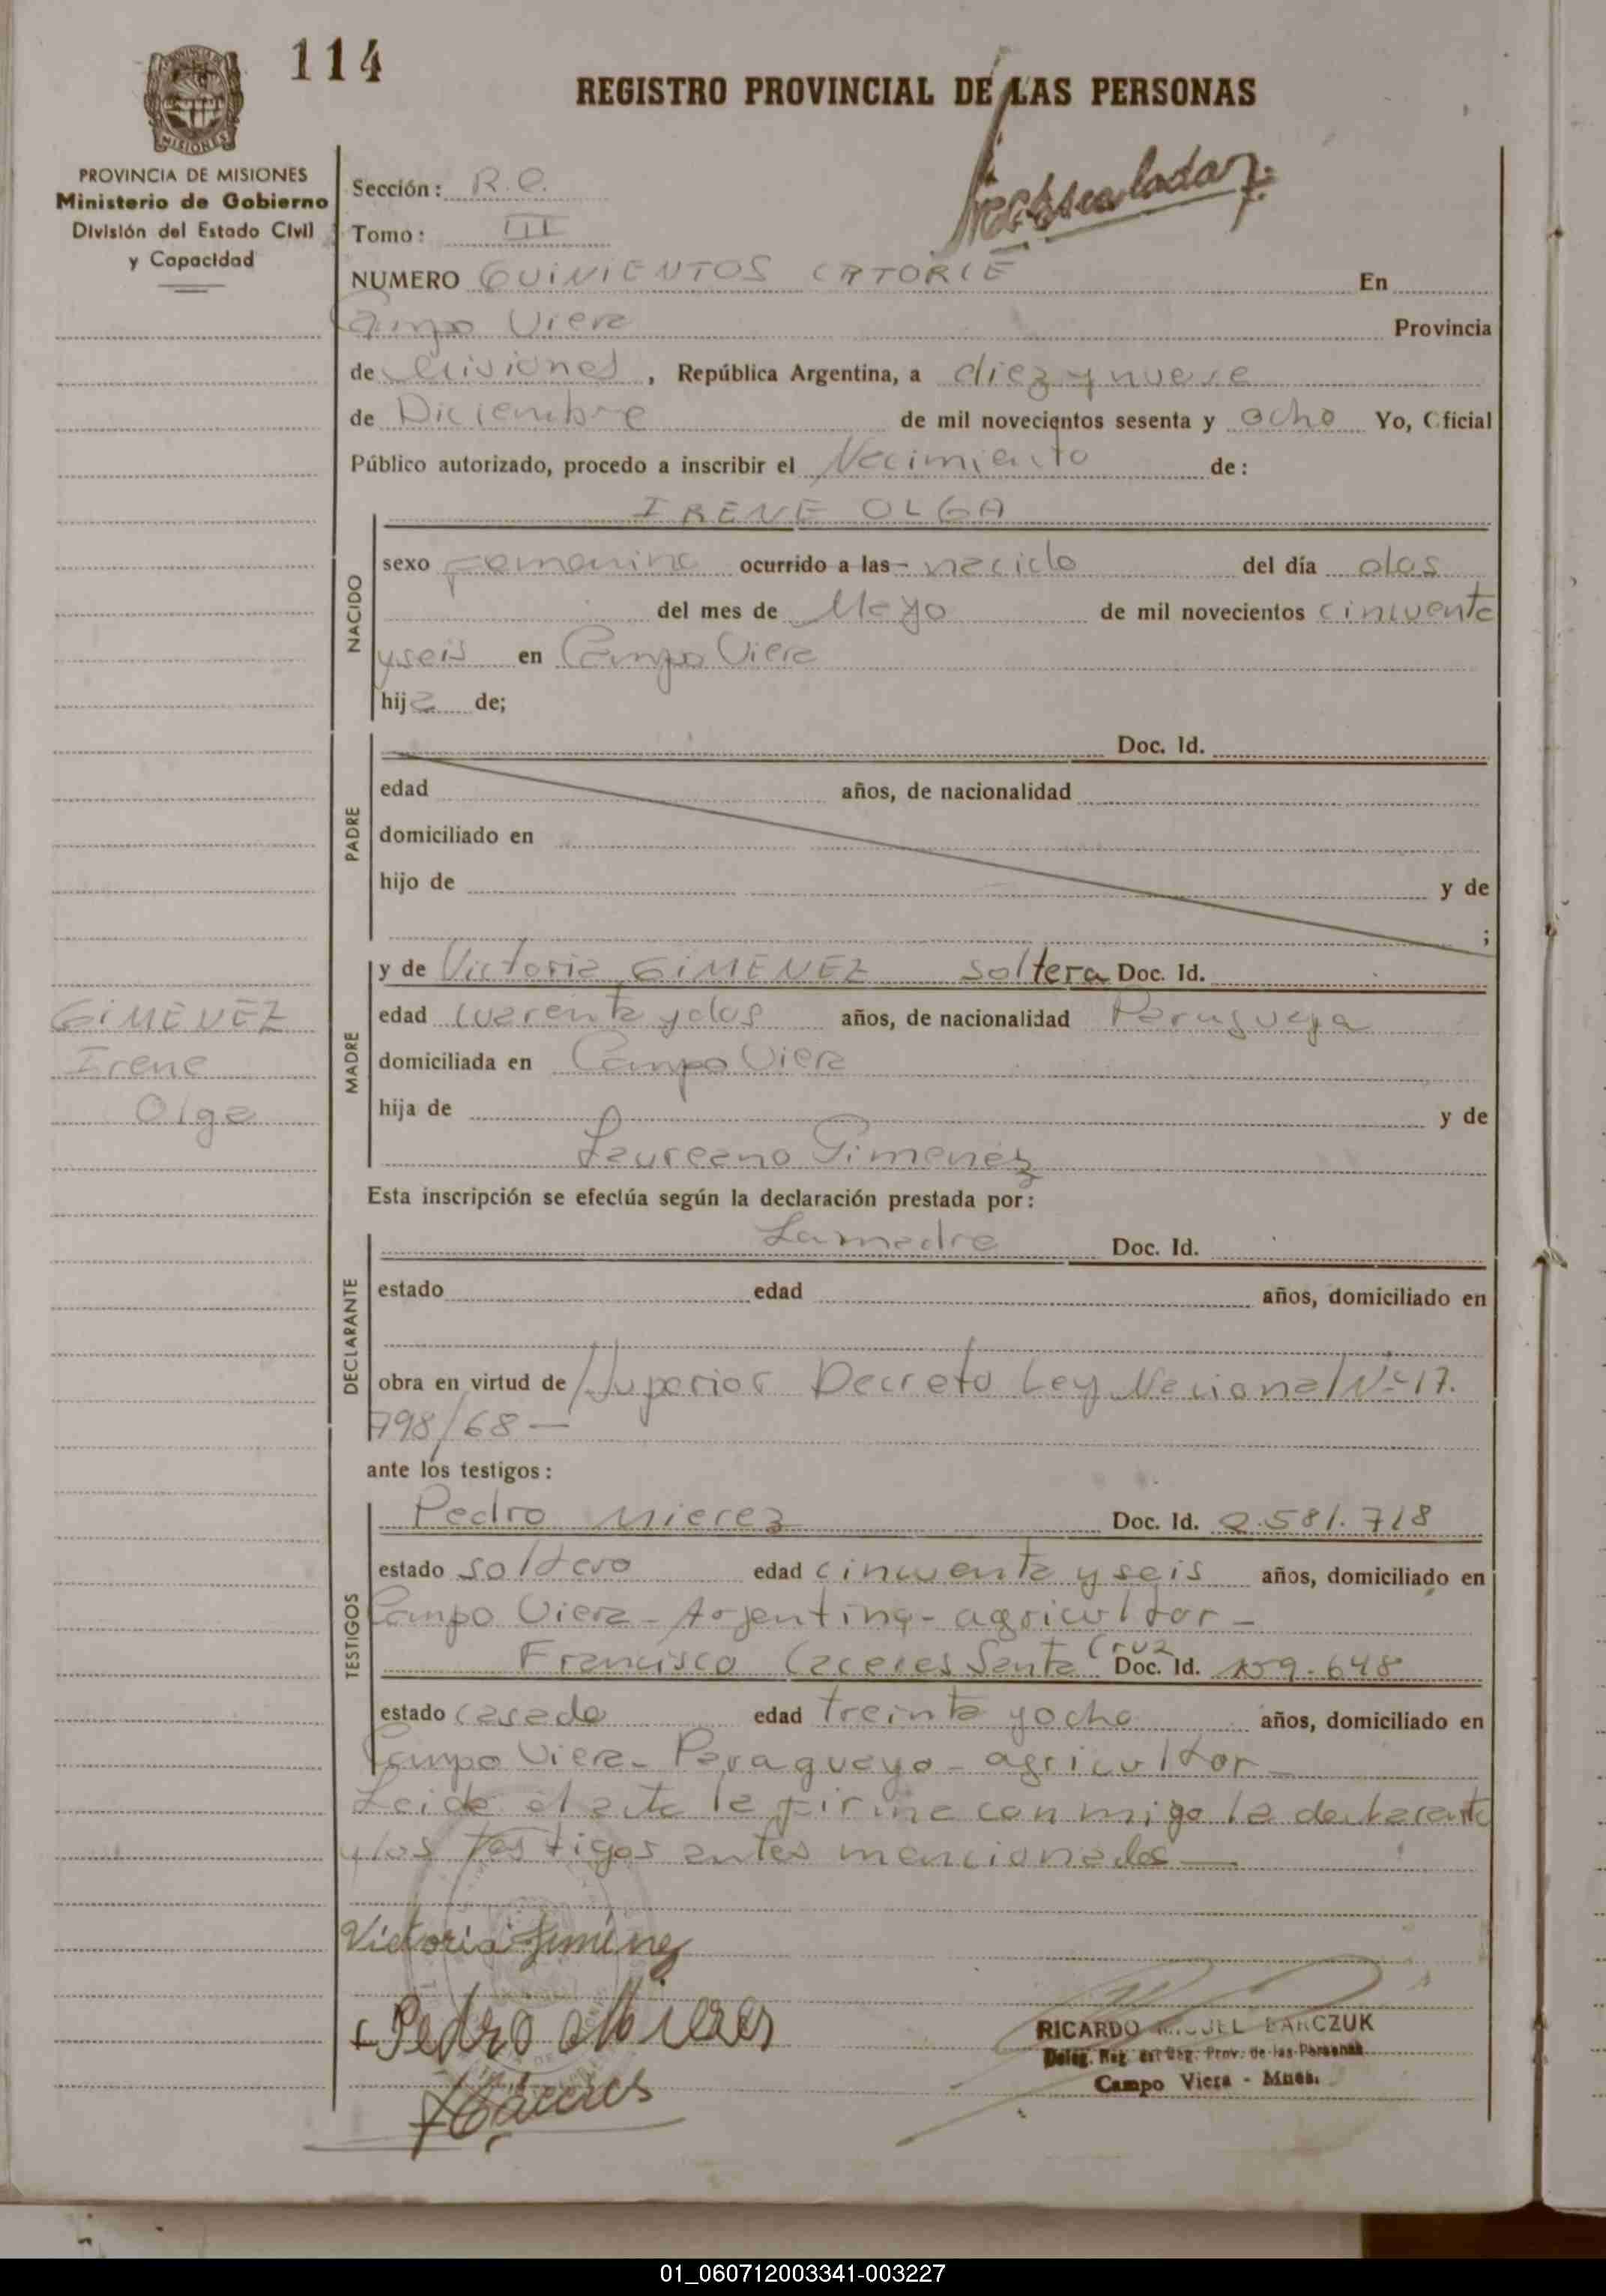 114
REGISTRO PROVINCIAL DE LAS PERSONAS
MISIONES
PROVINCIA DE MISIONES
Ministerio de Gobierno
División del Estado Civil
y Capacidad
Sección: R.C.
Tomo: III
NUMERO QUINIENTOS CATORCE En
Campo Viera Provincia
de Misiones, República Argentina, a diez y nueve
de Diciembre de mil novecientos sesenta y ocho Yo, Oficial
Público autorizado, procedo a inscribir el Nacimiento de:
IRENE OLGA
NACIDO
sexo femenino ocurrido a las - nacido del día dos
del mes de Mayo de mil novecientos cincuenta
y seis en Campo Viera
hija de;
PADRE
Doc. Id.
edad años, de nacionalidad
domiciliado en
hijo de y de
;
MADRE
y de Victoria GIMENEZ soltera Doc. Id.
edad cuarenta y dos años, de nacionalidad Paraguaya
domiciliada en Campo Viera
hija de y de
Laureano Gimenez
GIMENEZ
Irene
Olga
Esta inscripción se efectúa según la declaración prestada por:
DECLARANTE
La madre Doc. Id.
estado edad años, domiciliado en
obra en virtud de Superior Decreto Ley Nacional Nº 17.
798/68 —
ante los testigos:
TESTIGOS
Pedro Mierez Doc. Id. 2.581.718
estado soltero edad cincuenta y seis años, domiciliado en
Campo Viera - Argentino - agricultor -
Francisco Caceres Santa Cruz Doc. Id. 159.648
estado casado edad treinta y ocho años, domiciliado en
Campo Viera - Paraguayo - agricultor -
Leida el acta la firma conmigo la declarante
y los testigos antes mencionados —
Victoria Jiminez
Pedro Mieres
Caceres
RICARDO MIGUEL BARCZUK
Prov. de las Personas
Campo Viera - Mnes.
01_060712003341-003227